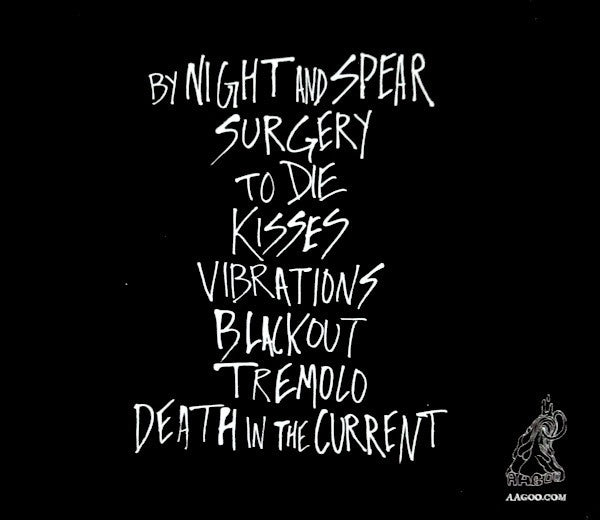 BY NIGHT AND SPEAR
SURGERY
TO DIE
KISSES
VIBRATIONS
BLACKOUT
TREMOLO
DEATH IN THE CURRENT
AAGOO
AAGOO.COM